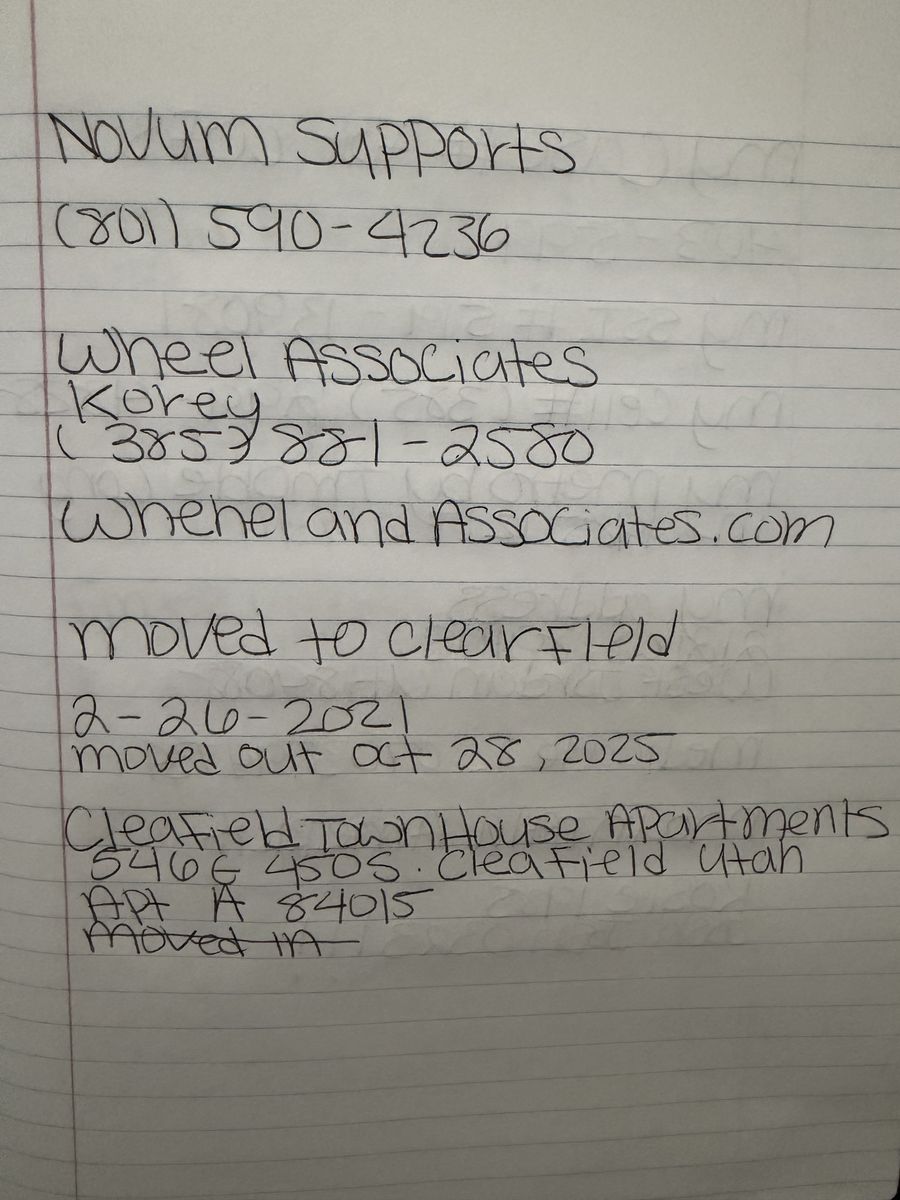 Novum Supports
(801) 590-4236
Wheel Associates
Korey
(385) 881-2580
Whehel and Associates.com
moved to clearfield
2-26-2021
moved out oct 28, 2025
Cleafield Town House Apartments
546 E 450 S. Cleafield Utah
Apt A 84015
moved in